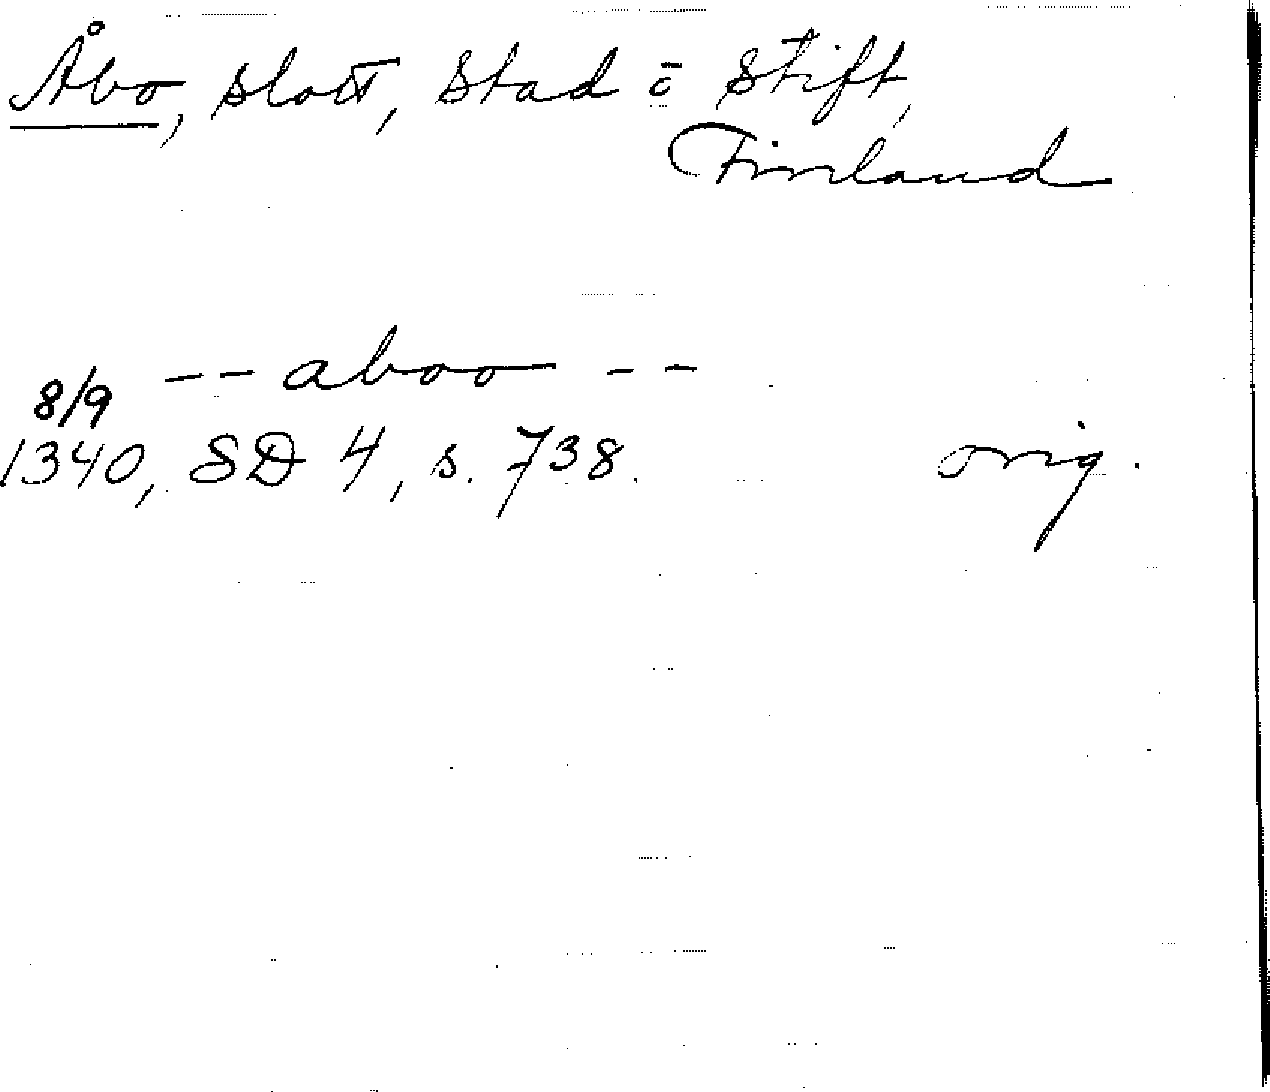 Åbo, slott, stad o stift,
Finland
-- aboo --
8/9
1340, SD 4, s. 738. orig.